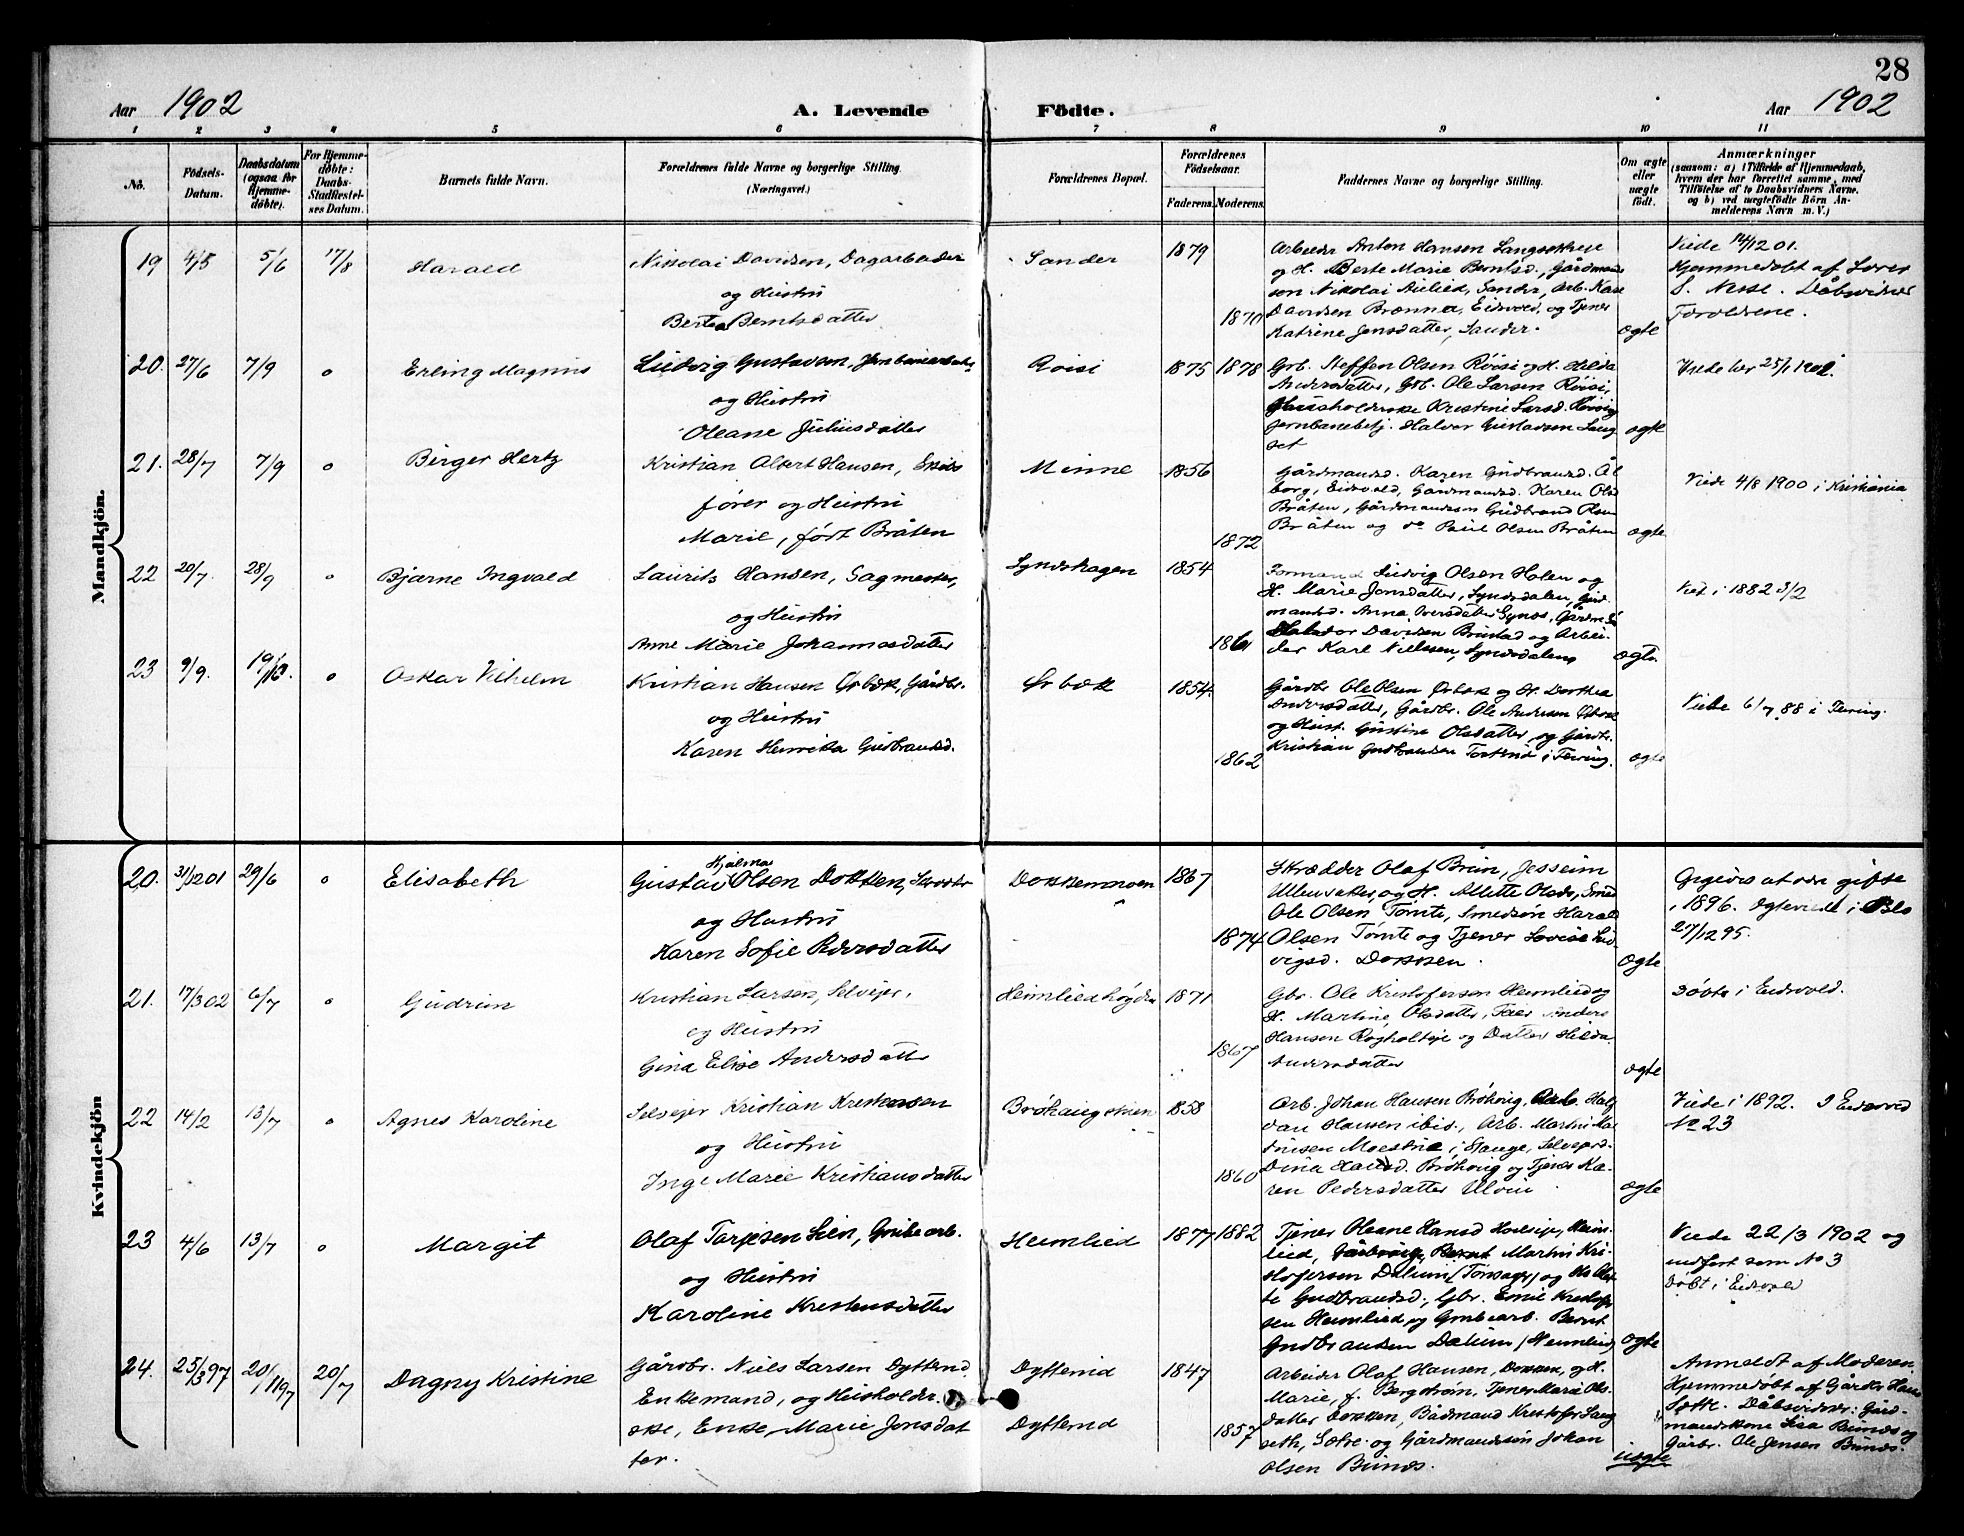 28
Aar 1902
A. Levende Födte.
Aar 1902
1 2 3 4 5 6 7 8 9 10 11
No.
Födsels-Datum.
Daabsdatum (ogsaa for Hjemmedøbte).
For Hjemmedøbte: Daabs-Stadfæstelses Datum.
Barnets fulde Navn.
Forældrenes fulde Navne og borgerlige Stilling.
(Næringsvei.)
Forældrenes Bopæl.
Forældrenes Födselsaar.
Faderens. Moderens.
Faddernes Navne og borgerlige Stilling.
Om ægte eller uægte födt.
Anmærkninger
(saasom: a) i Tilfælde af Hjemmedaab, hvem der har forrettet samme, med Tilföielse af to Daabsvidners Navne, og b) ved uægtefödte Börn Anmelderens Navn m. V.)
Mandkjön.
19 4/5 5/6 17/8 Harald
Nikolai Davidsen, Dagarbeider
og Hustru
Bertea Berntsdatter
Sander 1879 1870
Arbeider Anton Hansen
og H. Berte Marie Berntsd., Gårdmands
søn Nikolai Aulied, Sander, Arb. Kare
Davidsen Brænna, Eidsvold, og Tjener
Katrine Jensdatter, Sander.
ægte
Viede 14/12 01.
Hjemmedøbt af Lærer
S. Nesse. Dåbsvidner
Forældrene.
20. 27/6 7/9 o Erling Magnus
Ludvig Gustavsen, Jernbanearbeider
og Hustru
Oleane Juliusdatter
Røisi 1875 1878
Grb. Steffen Olsen Røisi og H. Hilda
Andersdatter, Grb. Ole Larsen Røisi,
Husholderske Kristine Larsd. Røisi,
Jernbanebetj. Halvor Gustavsen Lang
set
ægte
Viede her 25/1 1902.
21. 28/7 7/9 o Birger Hertz
Kristian Albert Hansen, Skibs
fører og Hustru
Marie, født Bråten
Minne 1856 1872
Gårdmandsd. Karen Gudbrandsd. Ål
borg, Eidsvold, Gårdmandsd. Karen Olsd
Bråten, Gårdmandssøn Gudbrand Olsen
Bråten og do Paul Olsen Bråten
ægte
Viede 4/8 1900 i Kristiania
22 20/7. 28/9 o Bjarne Ingvald
Laurits Hansen, Sagmester,
og Hustru
Anne Marie Johannesdatter
Syndshagen 1854 1861
Formand Ludvig Olsen Holen og
H. Marie Jonsdatter, Syndsdalen, Gård
mandsd. Anna Iversdatter Synds,
Davidsen Brustad og Arbei-
der Karl Nielssen, Syndsdalen
ægte.
Viet i 1882 3/2
23 9/9. 19/10. o Oskar Vilhelm
Kristian Hansen Ørbæk, Gårdbr.
og Hustru
Karen Henrika Gudbrandsd.
Ørbæk 1854. 1862
Gårdbr. Ole Olsen Ørbæk og H. Dorthea
Andersdatter, Gårdbr. Ole Andersen Ørbæk
og Hust. Gustina Olsdatter, og Gårdbr.
Kristian Gudbrandsen Tosterud i Feiring.
ægte
Viede 6/7 88 i Feiring.
Kvindekjön
20. 31/12 01 29/6 o Elisabeth
Hjalmar
Gustav Olsen Dokken, Gårdbr
og Hustru
Karen Sofie Pedersdatter
Dokkenmoen 1867 1874
Skrædder Olaf Brun, Jesseim
Ullensaker, og H. Alette Olsdr, Smed
Ole Olsen Tømte, Smedsøn Harald
Olsen Tømte og Tjener Lovise Lud
vigsd. Dokken.
ægte
Opgives at være gifte
1896. Ægteviede i
27/12 95.
21. 17/3 02 6/7 o Gudrun
Kristian Larsen, Selveier,
og Hustru
Gina Elise Andersdatter
Heimliedhøgden 1871 1867
Gbr. Ole Kristofersen Heimlied og
H. Martine Olsdatter, Faer Anders
Hansen Røgholteie og Datter Hilda
Andersdatter
ægte
Døbte i Eidsvold.
22 14/2 13/7 o Agnes Karoline
Selveier Kristian Kristiansen
og Hustru
Inge Marie Kristiansdatter
Brøhaugstuen 1858 1860
Arb. Johan Hansen Brøhaug, Arb. Hal
van Hansen ibid., Arb. Martin Ma
tinsen Moestue i Stange, Selveierd.
Dina Hansd. Brøhaug og Tjener Ka-
ren Pedersdatter Ulvin
ægte
Viede i 1892. I Eidsvold
No 23
23 4/6 13/7 o Margit
Olaf Torjusen Lien, Grubearb.
og Hustru
Karoline Kristensdatter
Heimlied 1877 1882
Tjener Oleane Hansd Holseie, Heim-
lied, Bernt Martin Kri-
stofersen Dalum (Tønsager) og
Gudbrandsd., Gbr. Emil Kristoffer
sen Heimlied og Grubearb. Bernt
Gudbrandsen Dalum (Heimlied)
ægte
Viede 22/3 1902 og
indført som No 3
Døbt i Eidsvold
24. 25/3 97 20/11 97 20/7 Dagny Kristine
Gårdbr. Niels Larsen Dytterud
Enkemand, og Husholder
ske, Enke, Marie Jonsdat
ter.
Dytterud 1847
Dytterud 1857
Arbeider Olaf Hansen, Dokken, og H.
Marie, f. Bergstrøm, Tjener Marie Ols-
datter Dokken, Bådmand Kristofer Lang
seth, Sætre og Gårdmandssøn Johan
Olsen Bunds.
uægte
Anmeldt af Moderen
Hjemmedøbt af Gårdbr Hans
Sætre. Dåbsvidner: Gård-
mandskone Lisa Bunds og
Gårbr. Ole Jensen Bunds.